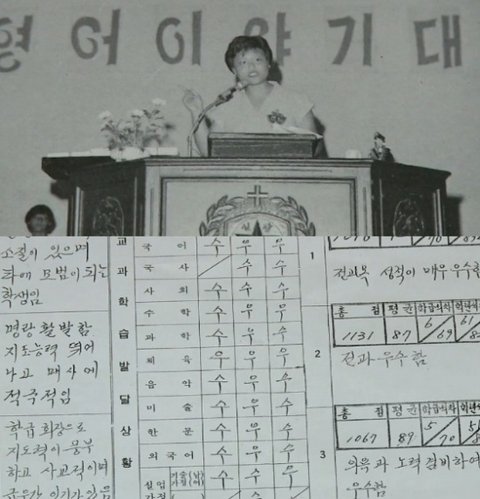 어이야기대
실상
소절이 있으며
타에 모범이 되는
학생임
명랑활발함
지도능력 뛰어
나고 매사에
적극적임
학급회장으로
지도력이 풍부
하고 사교적이며
교과학습발달상황
국어 수 우 우
국사 수 우
사회 수 수 수
수학 수 우 우
과학 수 우 수
체육 우 우 우
음악 수 수 수
미술 수 수 수
한문 수 수 우
외국어 수 수 수
실업 기술(남)
가정 수 우 수
1
전과목 성적이 매우 우수함
총점 평균 학급석차 학년석차
1131 87 6/69 61
2
전과 우수함
총점 평균 학급석차
1067 89 5/70
3
의욕과 노력 겸비하여
우수함